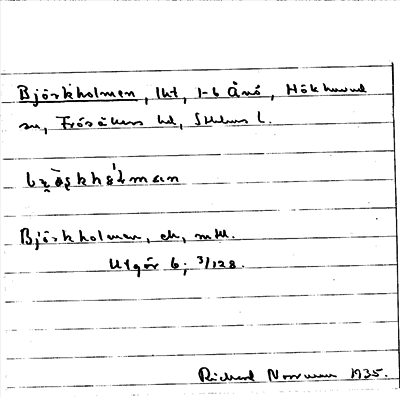 Björkholmen, lht, 1-6 Ånö, Hökhuvud
sn, Frösåkers hd, Sthlms l.
Björkholmen, ek, mtl.
Utgör 6; 3/128.
Richard Norrman 1935.